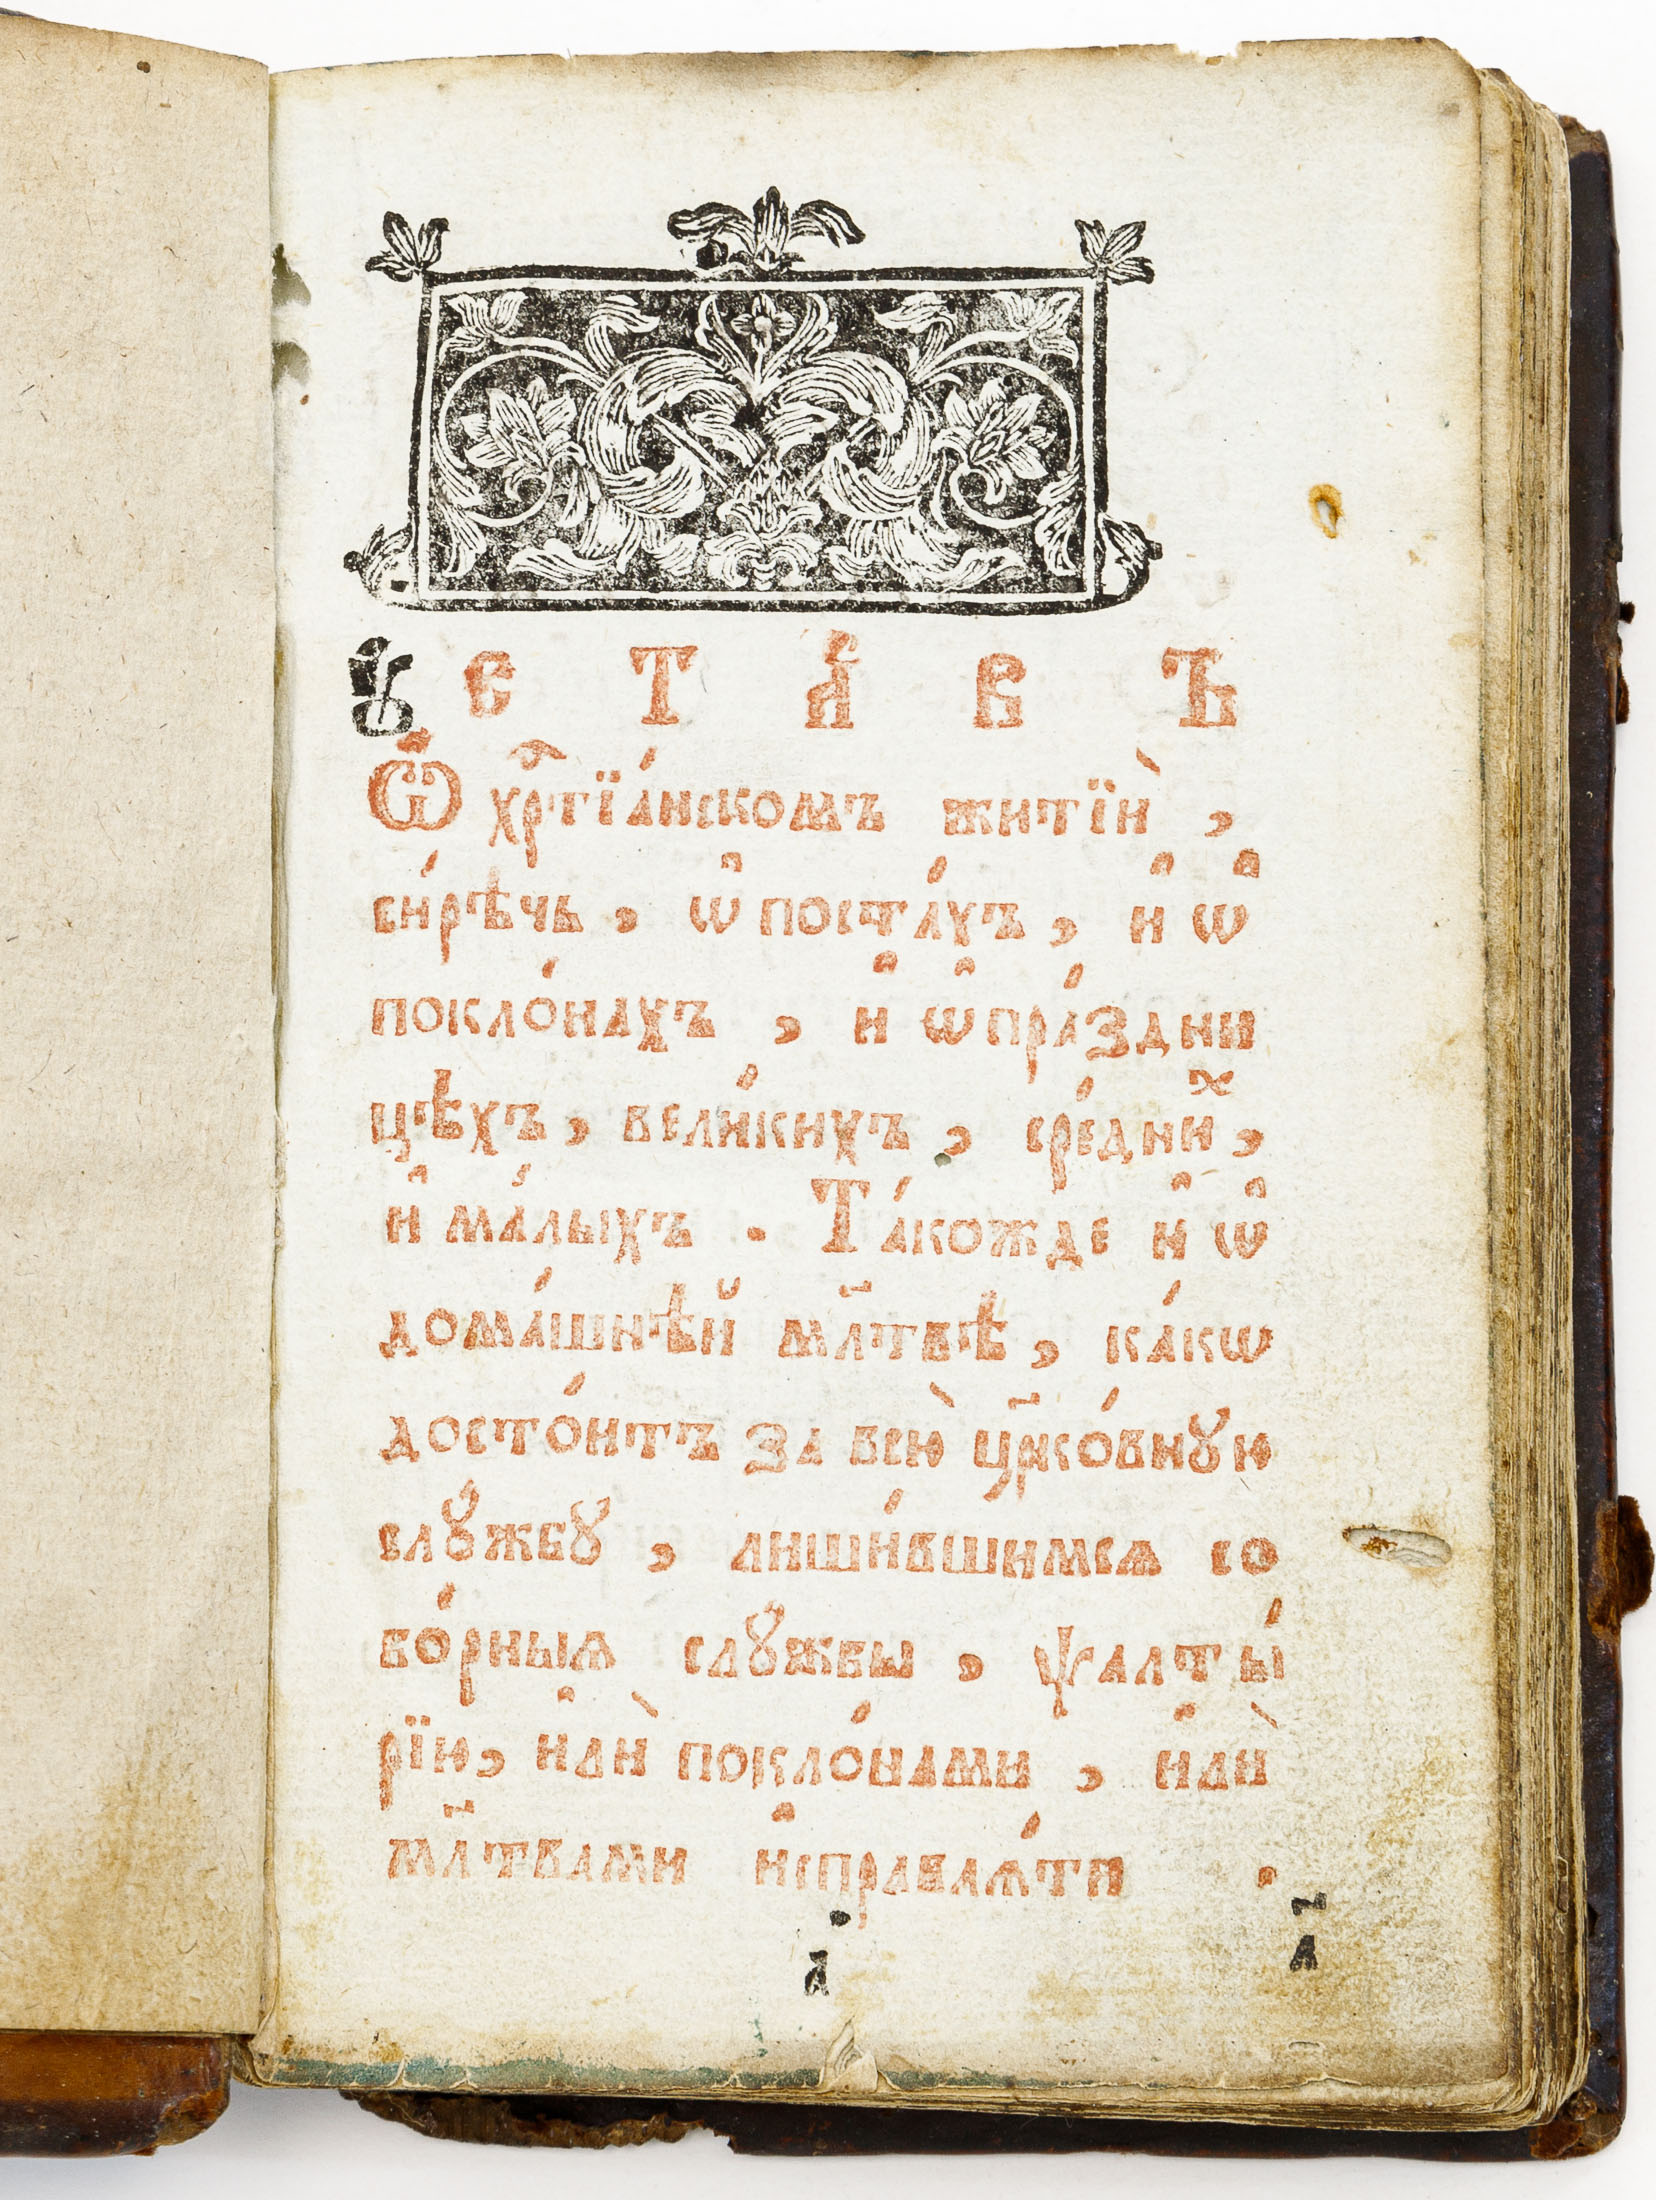 Ꙋ҆ С Т А́ В Ъ
Ѡ҆ хрⷭ҇тїа́нскомъ житїѝ,
си́рѣчь, ѡ҆ поста́хъ, и҆ ѡ҆
покло́нахъ, и҆ ѡ҆ пра́здни
цѣхъ, вели́кихъ, сре́дниⷯ,
и҆ ма́лыхъ. Та́кожде и҆ ѡ҆
дома́шнѣй мл҃твѣ, ка́кѡ
досто́итъ за всю̀ цр҃ко́внꙋю
слꙋ́жбꙋ, лиши́вшимсѧ со
бо́рныѧ слꙋ́жбы, ѱалты́
рїю, и҆лѝ покло́нами, и҆лѝ
мл҃твами и҆справлѧ́ти.
а҃
л҃